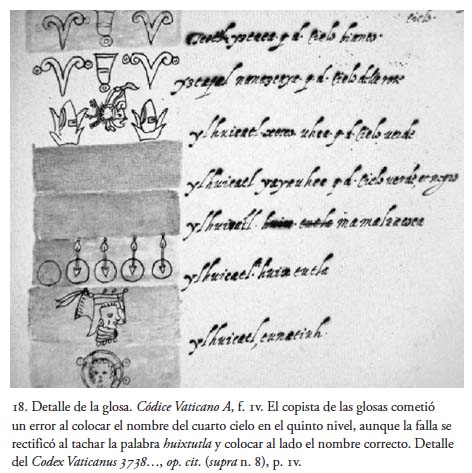 cielo.
yztaca q.d. cielo bianco
yztapal nanazcaya q.d. cielo delle rose
ylhuicatl xoxouhca q.d. cielo verde
ylhuicatl yayauhca q.d. cielo verde, et negro
ylhuicatl huix tutla mamaluacoca
ylhuicatl huixtutla
ylhuicatl, tunatiuh
18. Detalle de la glosa. Códice Vaticano A, f. 1v. El copista de las glosas cometió
un error al colocar el nombre del cuarto cielo en el quinto nivel, aunque la falla se
rectificó al tachar la palabra huixtutla y colocar al lado el nombre correcto. Detalle
del Codex Vaticanus 3738…, op. cit. (supra n. 8), p. 1v.